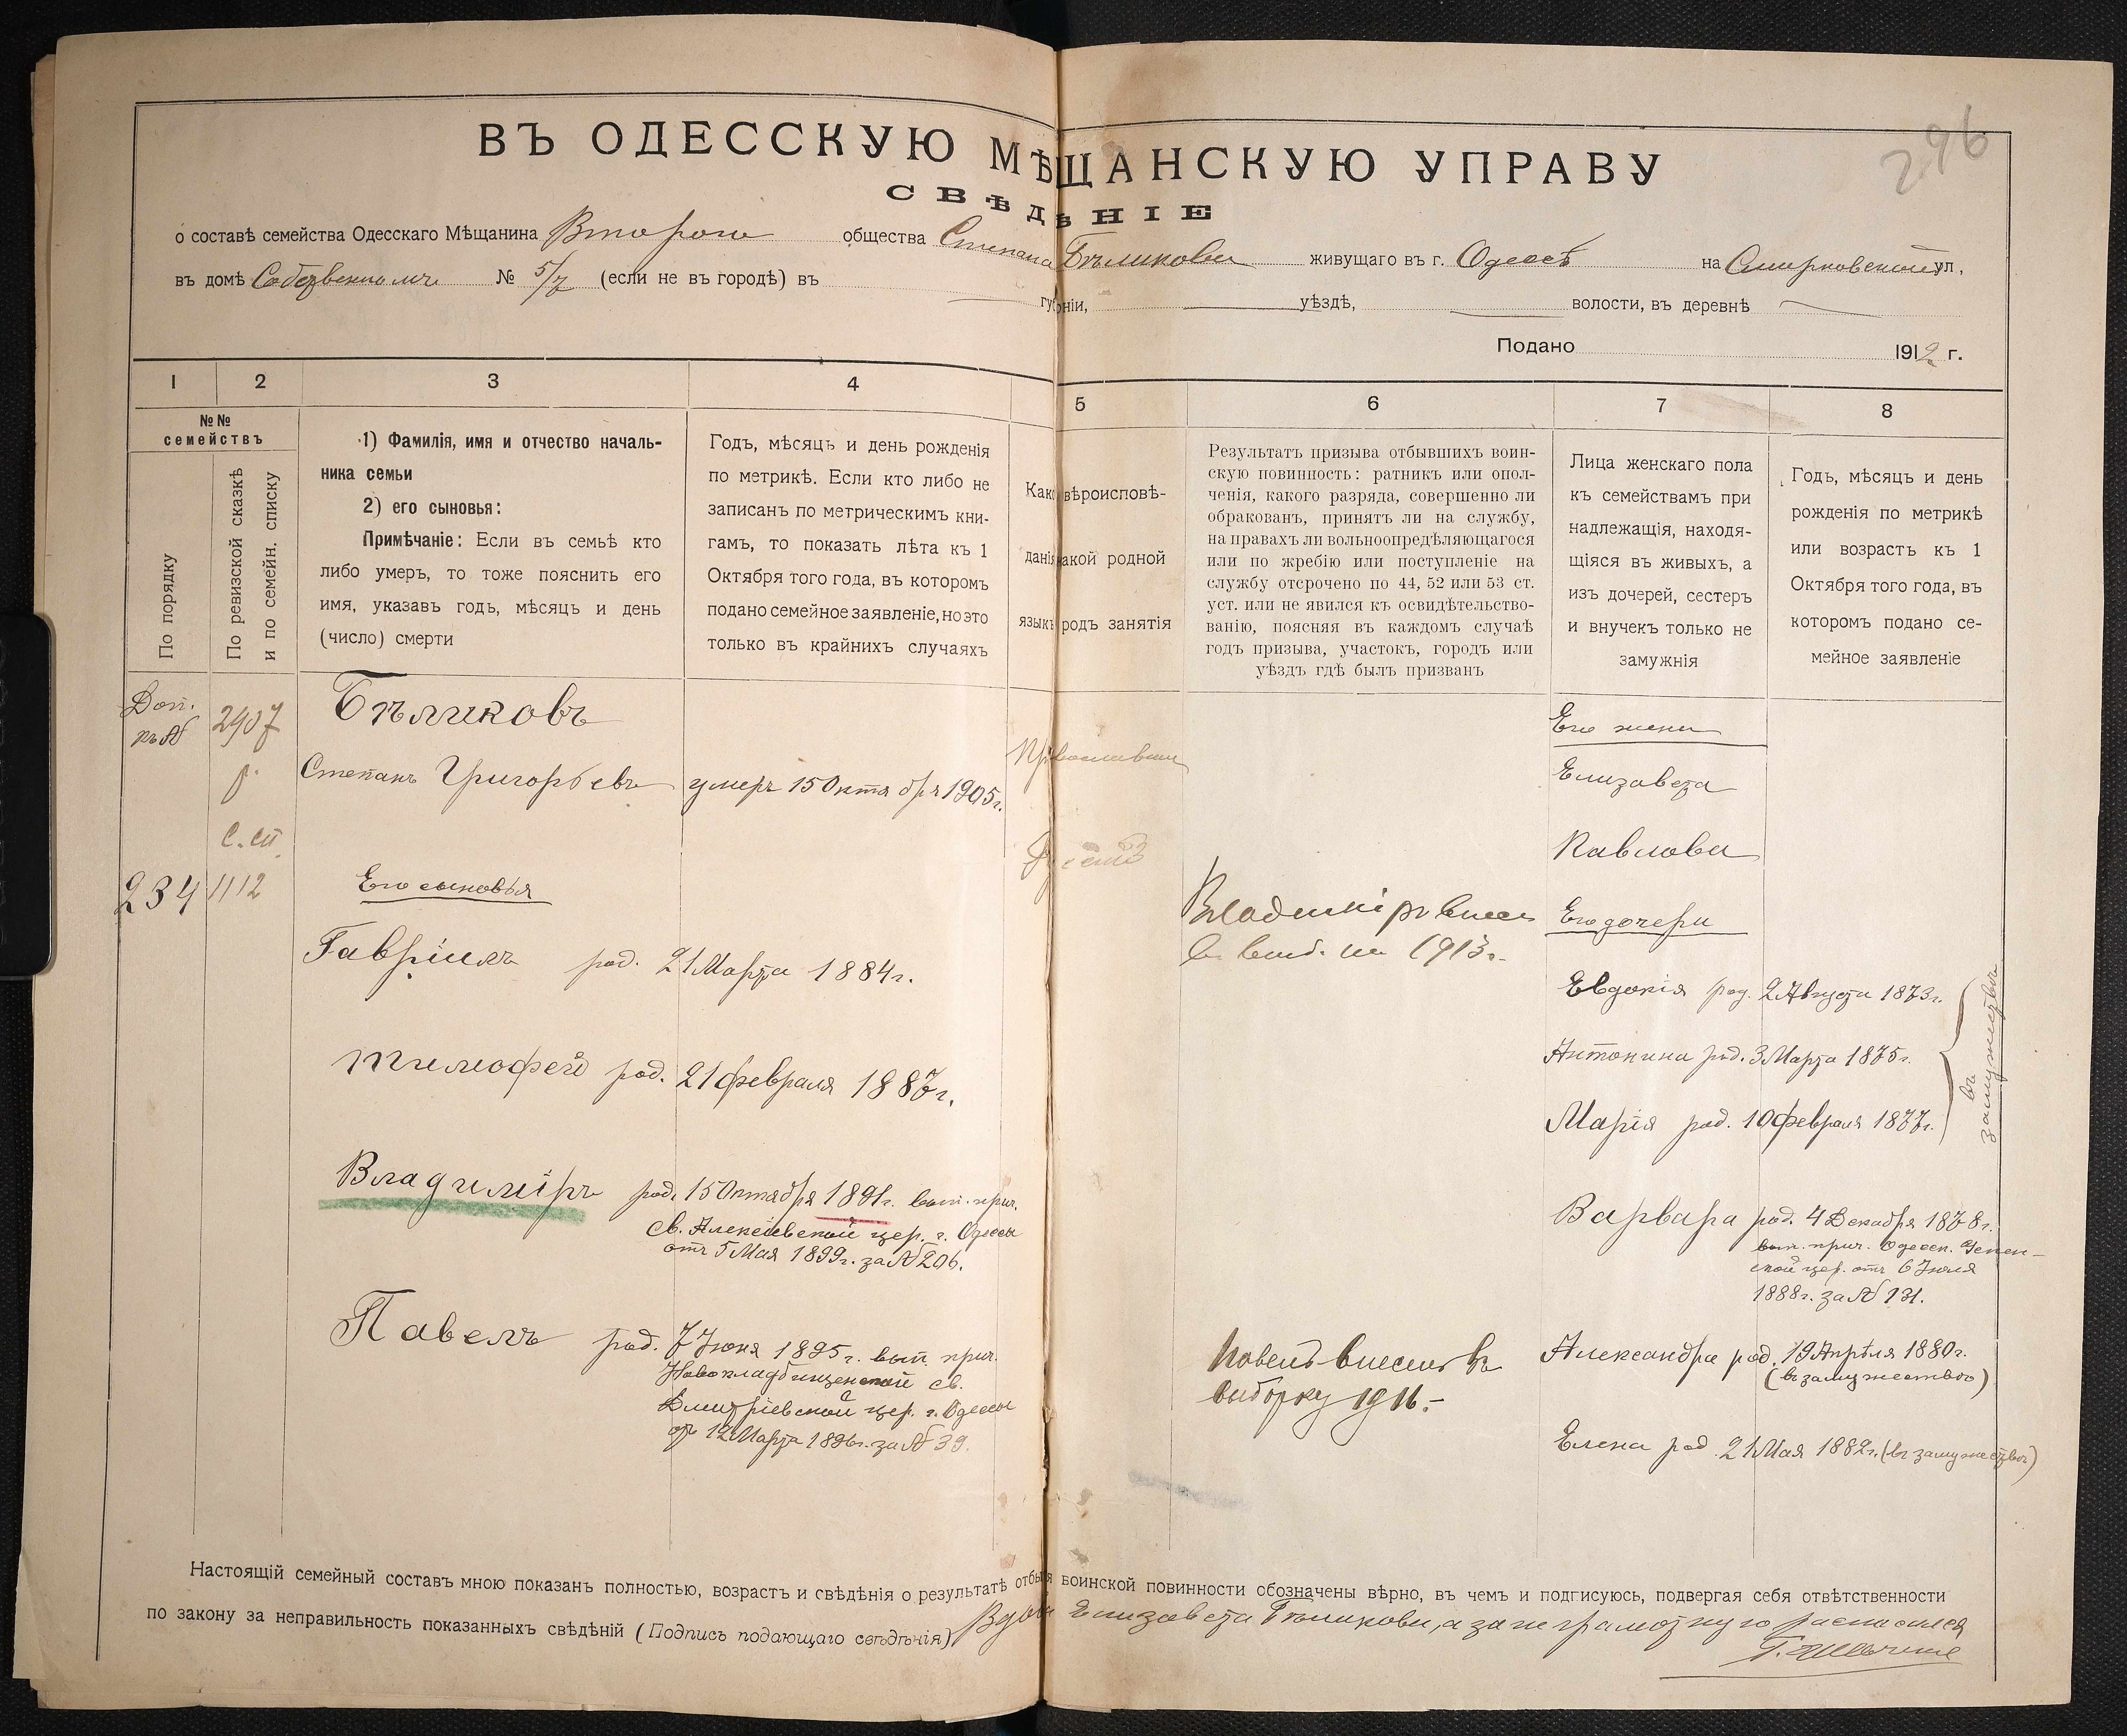 296
ВЪ ОДЕССКУЮ МѢЩАНСКУЮ УПРАВУ
СВѢДѢНІЕ
о составѣ семейства Одесскаго Мѣщанина Второго общества Степана Бѣликова живущаго въ г. Одессѣ на ул,
въ домѣ Собственномъ № 5/7 (если не въ городѣ) въ губерніи, уѣздѣ, волости, въ деревнѣ
Подано 1912 г.
1 2 3 4 5 6 7 8
№№ семействъ
По порядку
По ревизской сказкѣ
и по семейн. списку
1) Фамилія, имя и отчество началь-
ника семьи
2) его сыновья:
Примѣчаніе: Если въ семьѣ кто
либо умеръ, то тоже пояснить его
имя, указавъ годъ, мѣсяцъ и день
(число) смерти
Годъ, мѣсяцъ и день рожденія
по метрикѣ. Если кто либо не
записанъ по метрическимъ кни-
гамъ, то показать лѣта къ 1
Октября того года, въ которомъ
подано семейное заявленіе, но это
только въ крайнихъ случаяхъ
вѣроисповѣ-
какой родной
родъ занятія
Результатъ призыва отбывшихъ воин-
скую повинность: ратникъ или опол-
ченія, какого разряда, совершенно ли
обракованъ, принятъ ли на службу,
на правахъ ли вольноопредѣляющагося
или по жребію или поступленіе на
службу отсрочено по 44, 52 или 53 ст.
уст. или не явился къ освидѣтельство-
ванію, поясняя въ каждомъ случаѣ
годъ призыва, участокъ, городъ или
уѣздъ гдѣ былъ призванъ
Лица женскаго пола
къ семействамъ при
надлежащія, находя-
щіяся въ живыхъ, а
изъ дочерей, сестеръ
и внучекъ только не
замужнія
Годъ, мѣсяцъ и день
рожденія по метрикѣ
или возрастъ къ 1
Октября того года, въ
которомъ подано се-
мейное заявленіе
Доп.
къ №
2907
р.
с. сп.
234 1112
Бѣликовъ
Степанъ Григорьевъ умеръ 15 Октября 1905 г.
Его сыновья
Гавріилъ род. 21 Марта 1884 г.
Тимофей род. 21 февраля 1887 г.
Владиміръ род. 15 Октября 1891 г. вып. прич.
Св. Алексѣевской цер. г. Одессы
отъ 5 Мая 1899 г. за № 206.
Павелъ род. 7 Іюня 1895 г. вып. прич.
Новокладбищенской св.
Дмитріевской цер. г. Одессы
отъ 12 Марта 1896 г. за № 39.
Православны
Русскій
Владиміръ внес.
в выб. на 1913 г.
Павелъ внесенъ въ
выборку 1916.-
Его жена
Елизавета
Павлова
Его дочери
Евдокія род. 2 Августа 1873 г.
Антонина род. 3 Марта 1875 г.
Марія род. 10 февраля 1877 г.
въ замужествѣ
Варвара род. 4 Декабря 1878 г.
вып. прич. Одесск. Успен-
ской цер. отъ 6 Іюля
1888 г. за № 131.
Александра род. 19 Апрѣля 1880 г.
(въ замужествѣ)
Елена род. 21 Мая 1882 г. (въ замужествѣ)
Настоящій семейный составъ мною показанъ полностью, возрастъ и свѣдѣнія о результатѣ отбытія воинской повинности обозначены вѣрно, въ чемъ и подписуюсь, подвергая себя отвѣтственности
по закону за неправильность показанныхъ свѣдѣній (Подпись подающаго свѣдѣнія) Вдова Елизавета Бѣликова, а за неграмотную расписался